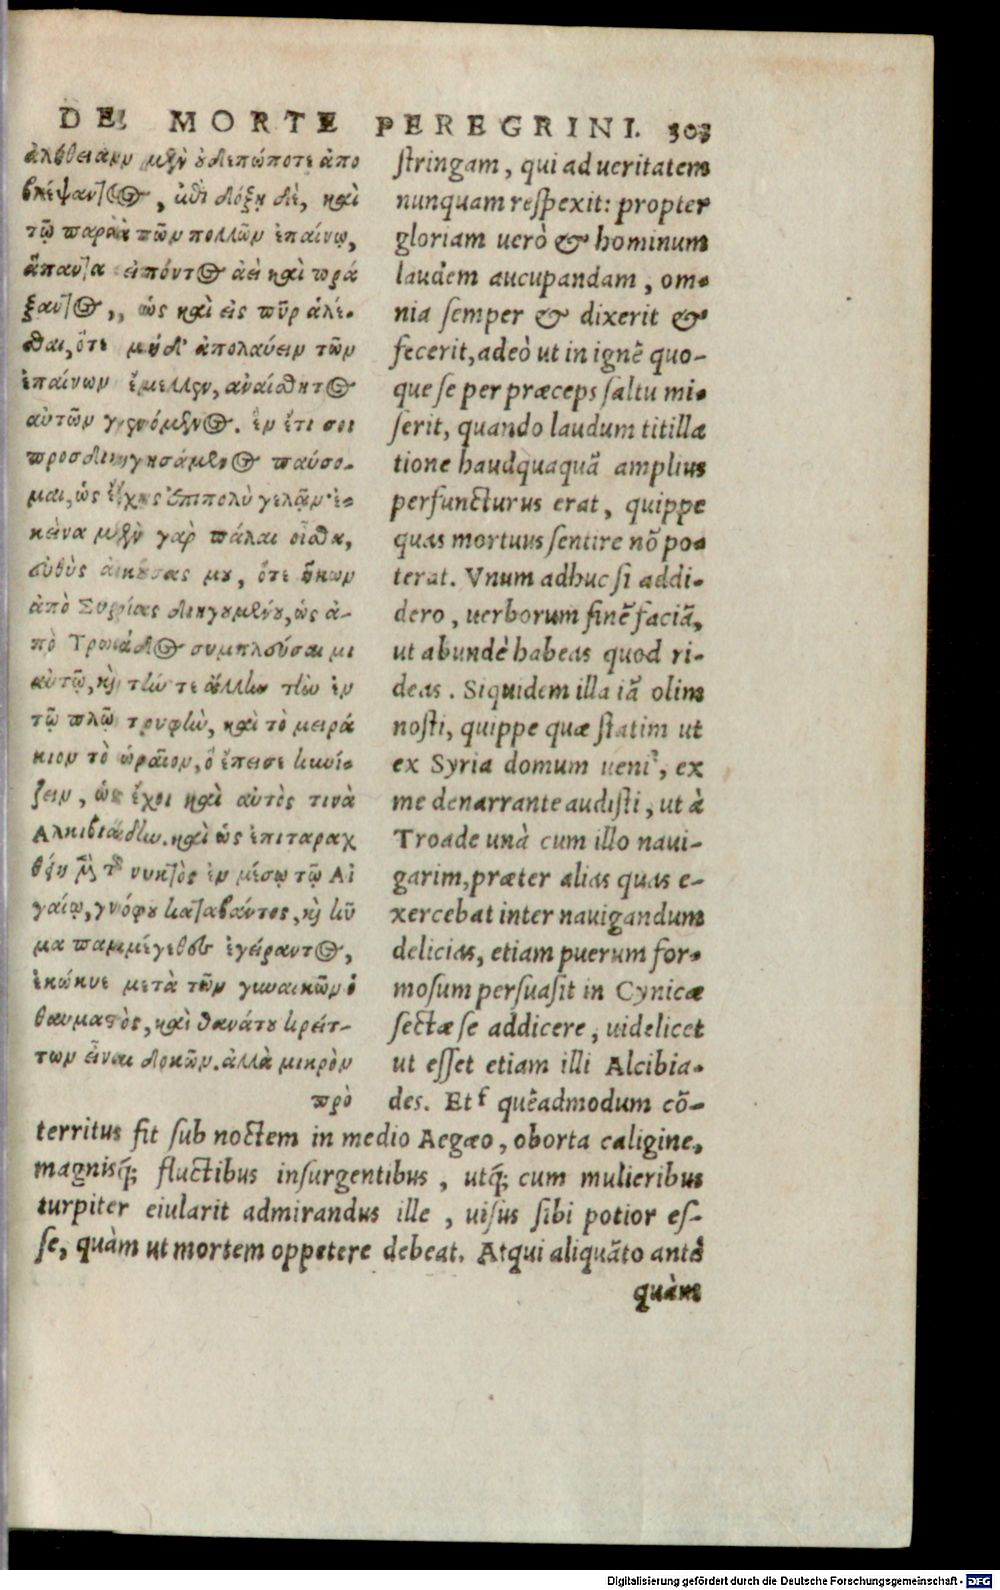 DE MORTE PEREGRINI. 303
ἀλήθειαν μὲν οὐδεπώποτε ἀπο
βλέψαντος, ἐπὶ δόξῃ δὲ, καὶ
τῷ παρὰ τῶν πολλῶν ἐπαίνῳ,
ἅπαντα εἰπόντος ἀεὶ καὶ πρά
ξαντος, ὡς καὶ εἰς πῦρ ἁλέ-
θαι, ὅτε μηδ' ἀπολαύειν τῶν
ἐπαίνων ἔμελλεν, ἀναίσθητος
αὐτῶν γενόμενος. ἓν ἔτι σοι
προσδιηγησάμενος παύσο-
μαι, ὡς ἔχῃς ἐπιπολὺ γελᾷν· ἐ-
κεῖνα μὲν γὰρ πάλαι οἶσθα,
εὐθὺς ἀκούσας μου, ὅτε ἥκων
ἀπὸ Συρίας διηγουμένου, ὡς ἀ-
πὸ Τρωάδος συμπλεύσαιμι
αὐτῷ, καὶ τήν τε ἄλλην τὴν ἐν
τῷ πλῷ τρυφὴν, καὶ τὸ μειρά
κιον τὸ ὡραῖον, ὃ ἔπεισε κυνί-
ζειν, ὡς ἔχοι καὶ αὐτός τινὰ
Αλκιβιάδην. καὶ ὡς ἐπιταραχ
θείη μεταξὺ τῆς νυκτὸς ἐν μέσῳ τῷ Αἰ
γαίῳ, γνόφου καταβάντος, καὶ κῦ
μα παμμέγεθες ἐγείραντος,
ἐκώκυε μετὰ τῶν γυναικῶν ὁ
θαυμαστὸς, καὶ θανάτου κρείτ-
των εἶναι δοκῶν. ἀλλὰ μικρὸν
πρὸ
stringam, qui ad ueritatem
nunquam respexit: propter
gloriam uerò & hominum
laudem aucupandam, om-
nia semper & dixerit &
fecerit, adeò ut in ignẽ quo-
que se per præceps saltu mi-
serit, quando laudum titilla
tione haudquaquã amplius
perfuncturus erat, quippe
quas mortuus sentire nõ po-
terat. Vnum adhuc si addi-
dero, uerborum finẽ faciã,
ut abundè habeas quod ri-
deas. Siquidem illa iã olim
nosti, quippe quæ statim ut
ex Syria domum ueni, ex
me denarrante audisti, ut à
Troade unà cum illo naui-
garim, præter alias quas e-
xercebat inter nauigandum
delicias, etiam puerum for-
mosum persuasit in Cynicæ
sectæ se addicere, uidelicet
ut esset etiam illi Alcibia-
des. Et quẽadmodum cõ-
territus sit sub noctem in medio Aegæo, oborta caligine,
magnisq́; fluctibus insurgentibus, utq́; cum mulieribus
turpiter eiularit admirandus ille, uisus sibi potior es-
se, quàm ut mortem oppetere debeat. Atqui aliquãto antè
quàm
Digitalisierung gefördert durch die Deutsche Forschungsgemeinschaft - DFG